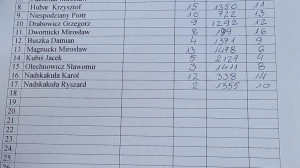 8. Hubar Krzysztof 15 1350 11
9. Niespodziany Piotr 10 722 13
10. Drabowicz Grzegorz 9 1292 12
11. Dwornicki Mirosław 8 199 16
12. Buszka Damian 4 1371 9
13. Magnucki Mirosław 13 1478 6
14. Kubsi Jacek 5 2129 4
15. Olechnowicz Sławomir 3 1411 8
16. Nadskakuła Karol 12 338 14
17. Nadskakuła Ryszard 2 1355 10
18.
19.
20.
21.
22.
23.
24.
25.